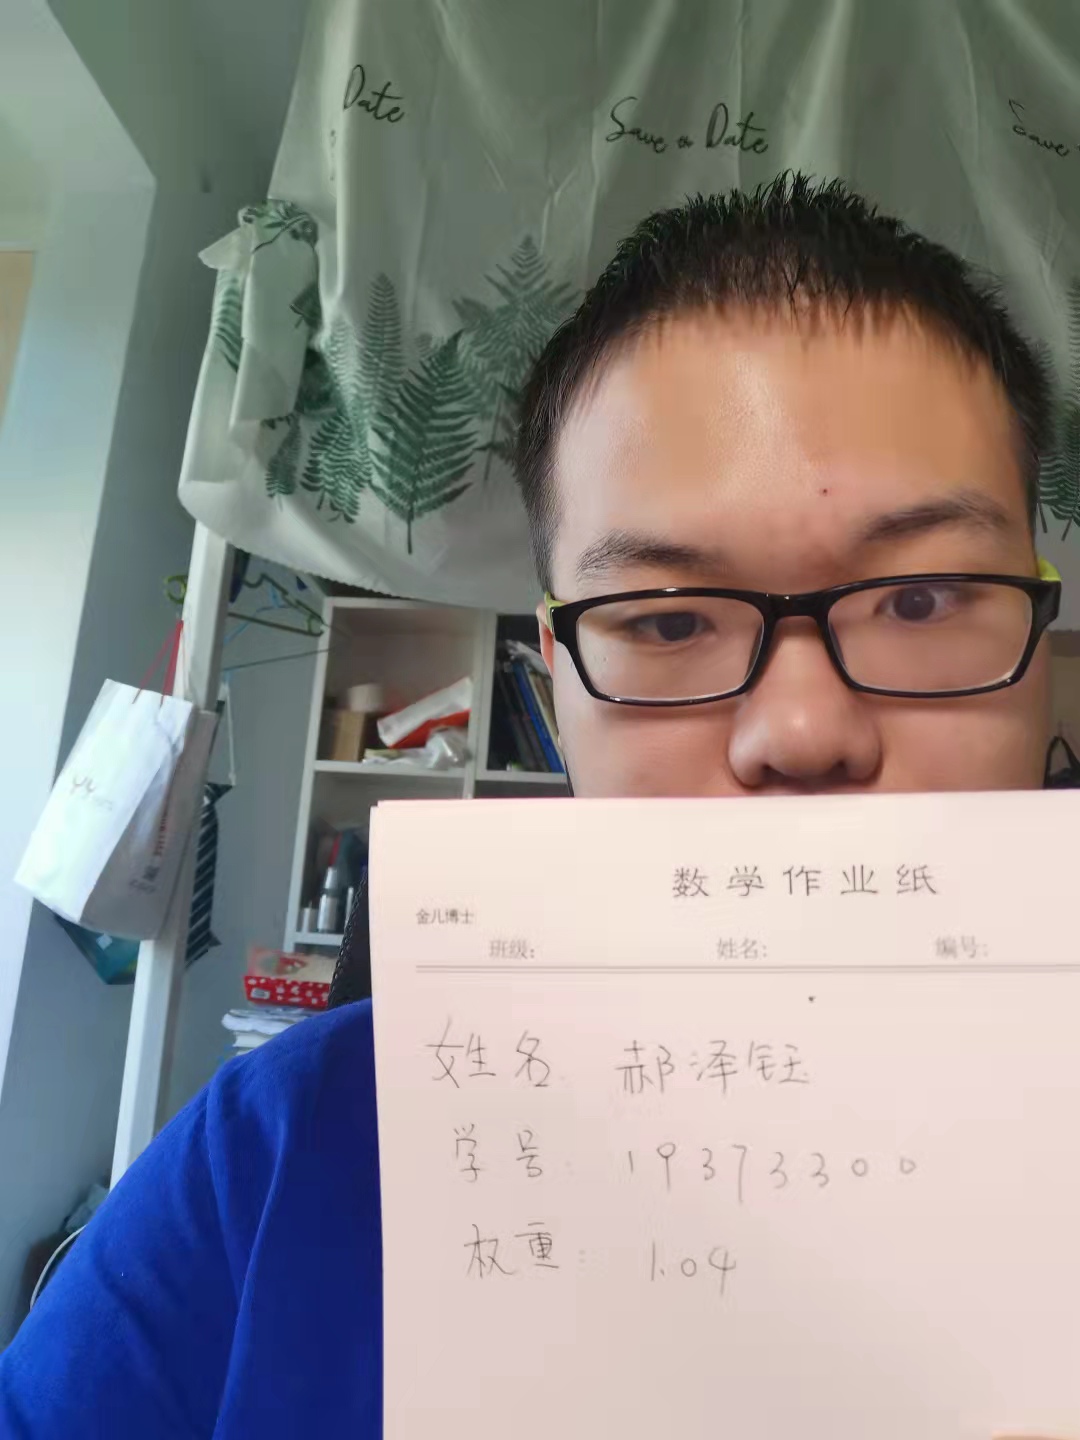 Date
Save a Date
Save
数学作业纸
金儿博士
班级: 姓名: 编号:
姓名: 郝泽钰
学号: 19373300
权重: 1.04